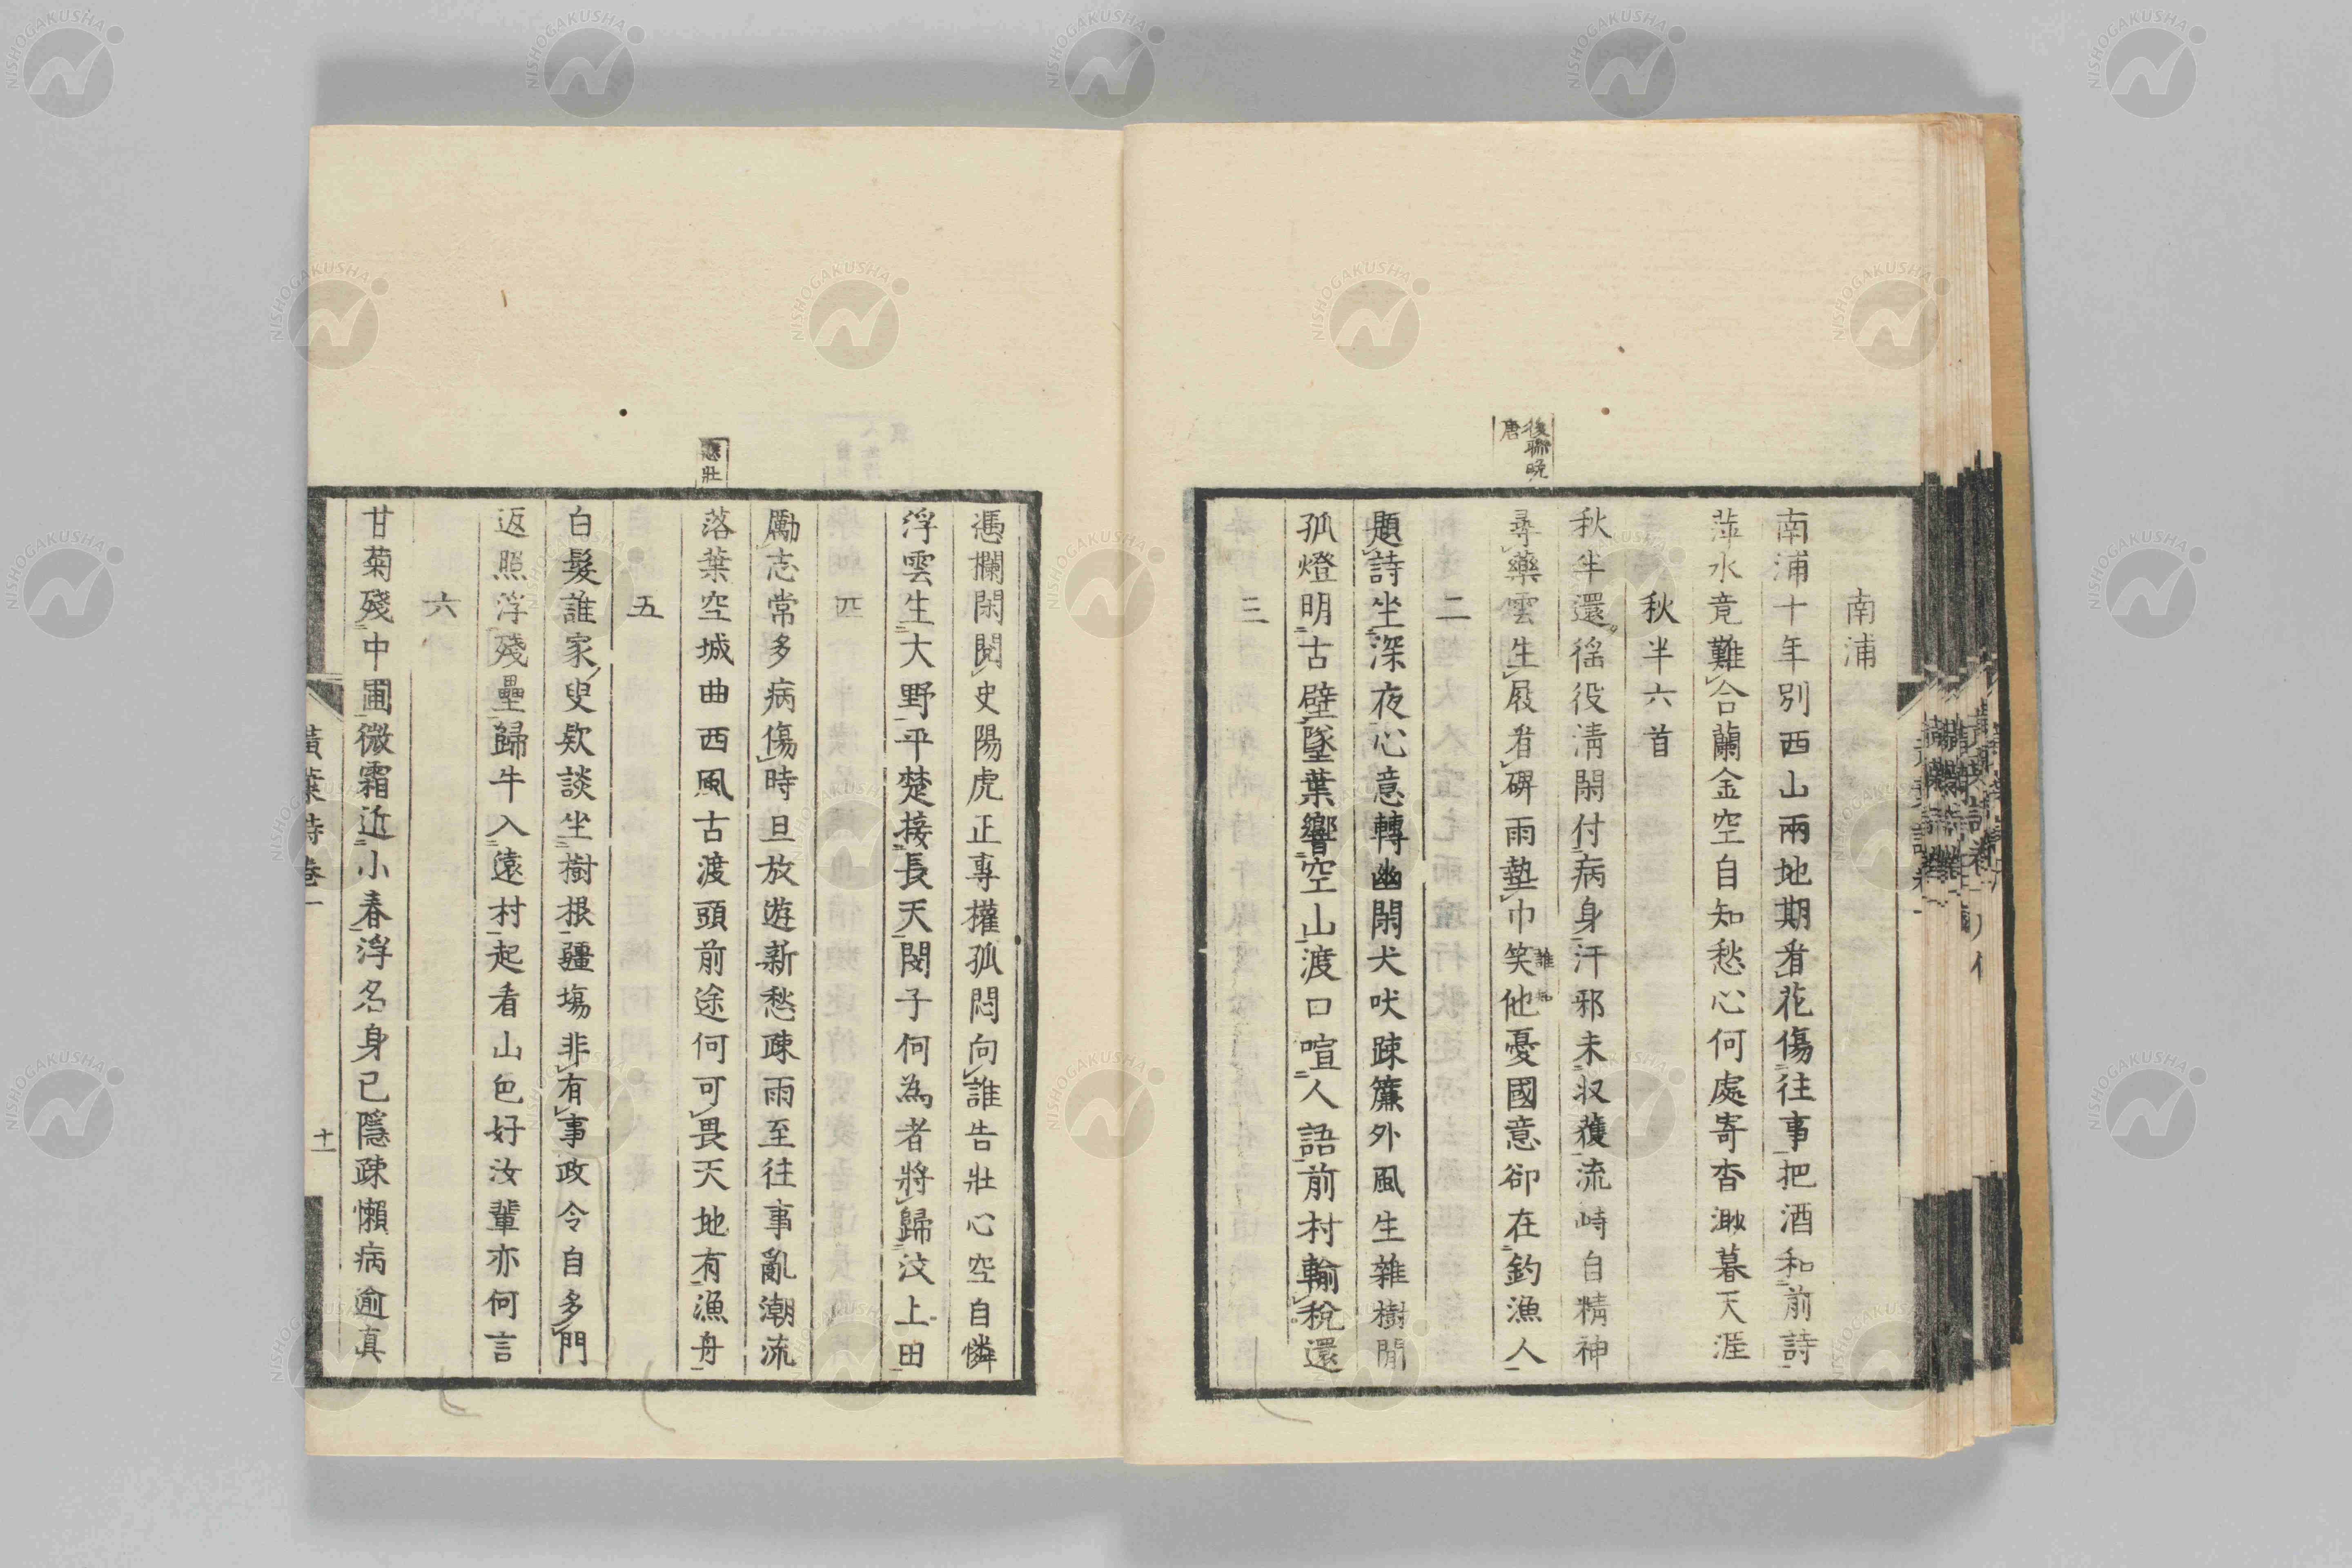 南浦
南浦十年別西山兩地期看花傷往事把酒和前詩
萍水竟難合蘭金空自知愁心何處寄杳渺暮天涯
秋半六首
秋半還徭役淸閑付病身汗邪未収穫流峙自精神
後聯晩
唐
尋藥雲生屐看碑雨墊巾笑他憂國意卻在釣漁人
二
題詩坐深夜心意轉幽閑犬吠踈簾外風生雜樹閒
孤燈明古壁墜葉響空山渡口喧人語前村輸稅還
三
憑欄閑閱史陽虎正專權孤悶向誰告壯心空自憐
浮雲生大野平楚接長天閔子何為者將歸汶上田
四
勵志常多病傷時且放遊新愁疎雨至往事亂潮流
悲壯
落葉空城曲西風古渡頭前途何可畏天地有漁舟
五
白髮誰家叟欵談坐樹根疆塲非有事政令自多門
返照浮殘壘歸牛入遠村起看山色好汝輩亦何言
六
甘菊殘中圃微霜近小春浮名身已隱疎懶病逾真
黃葉詩卷一
十一
NISHOGAKUSHA